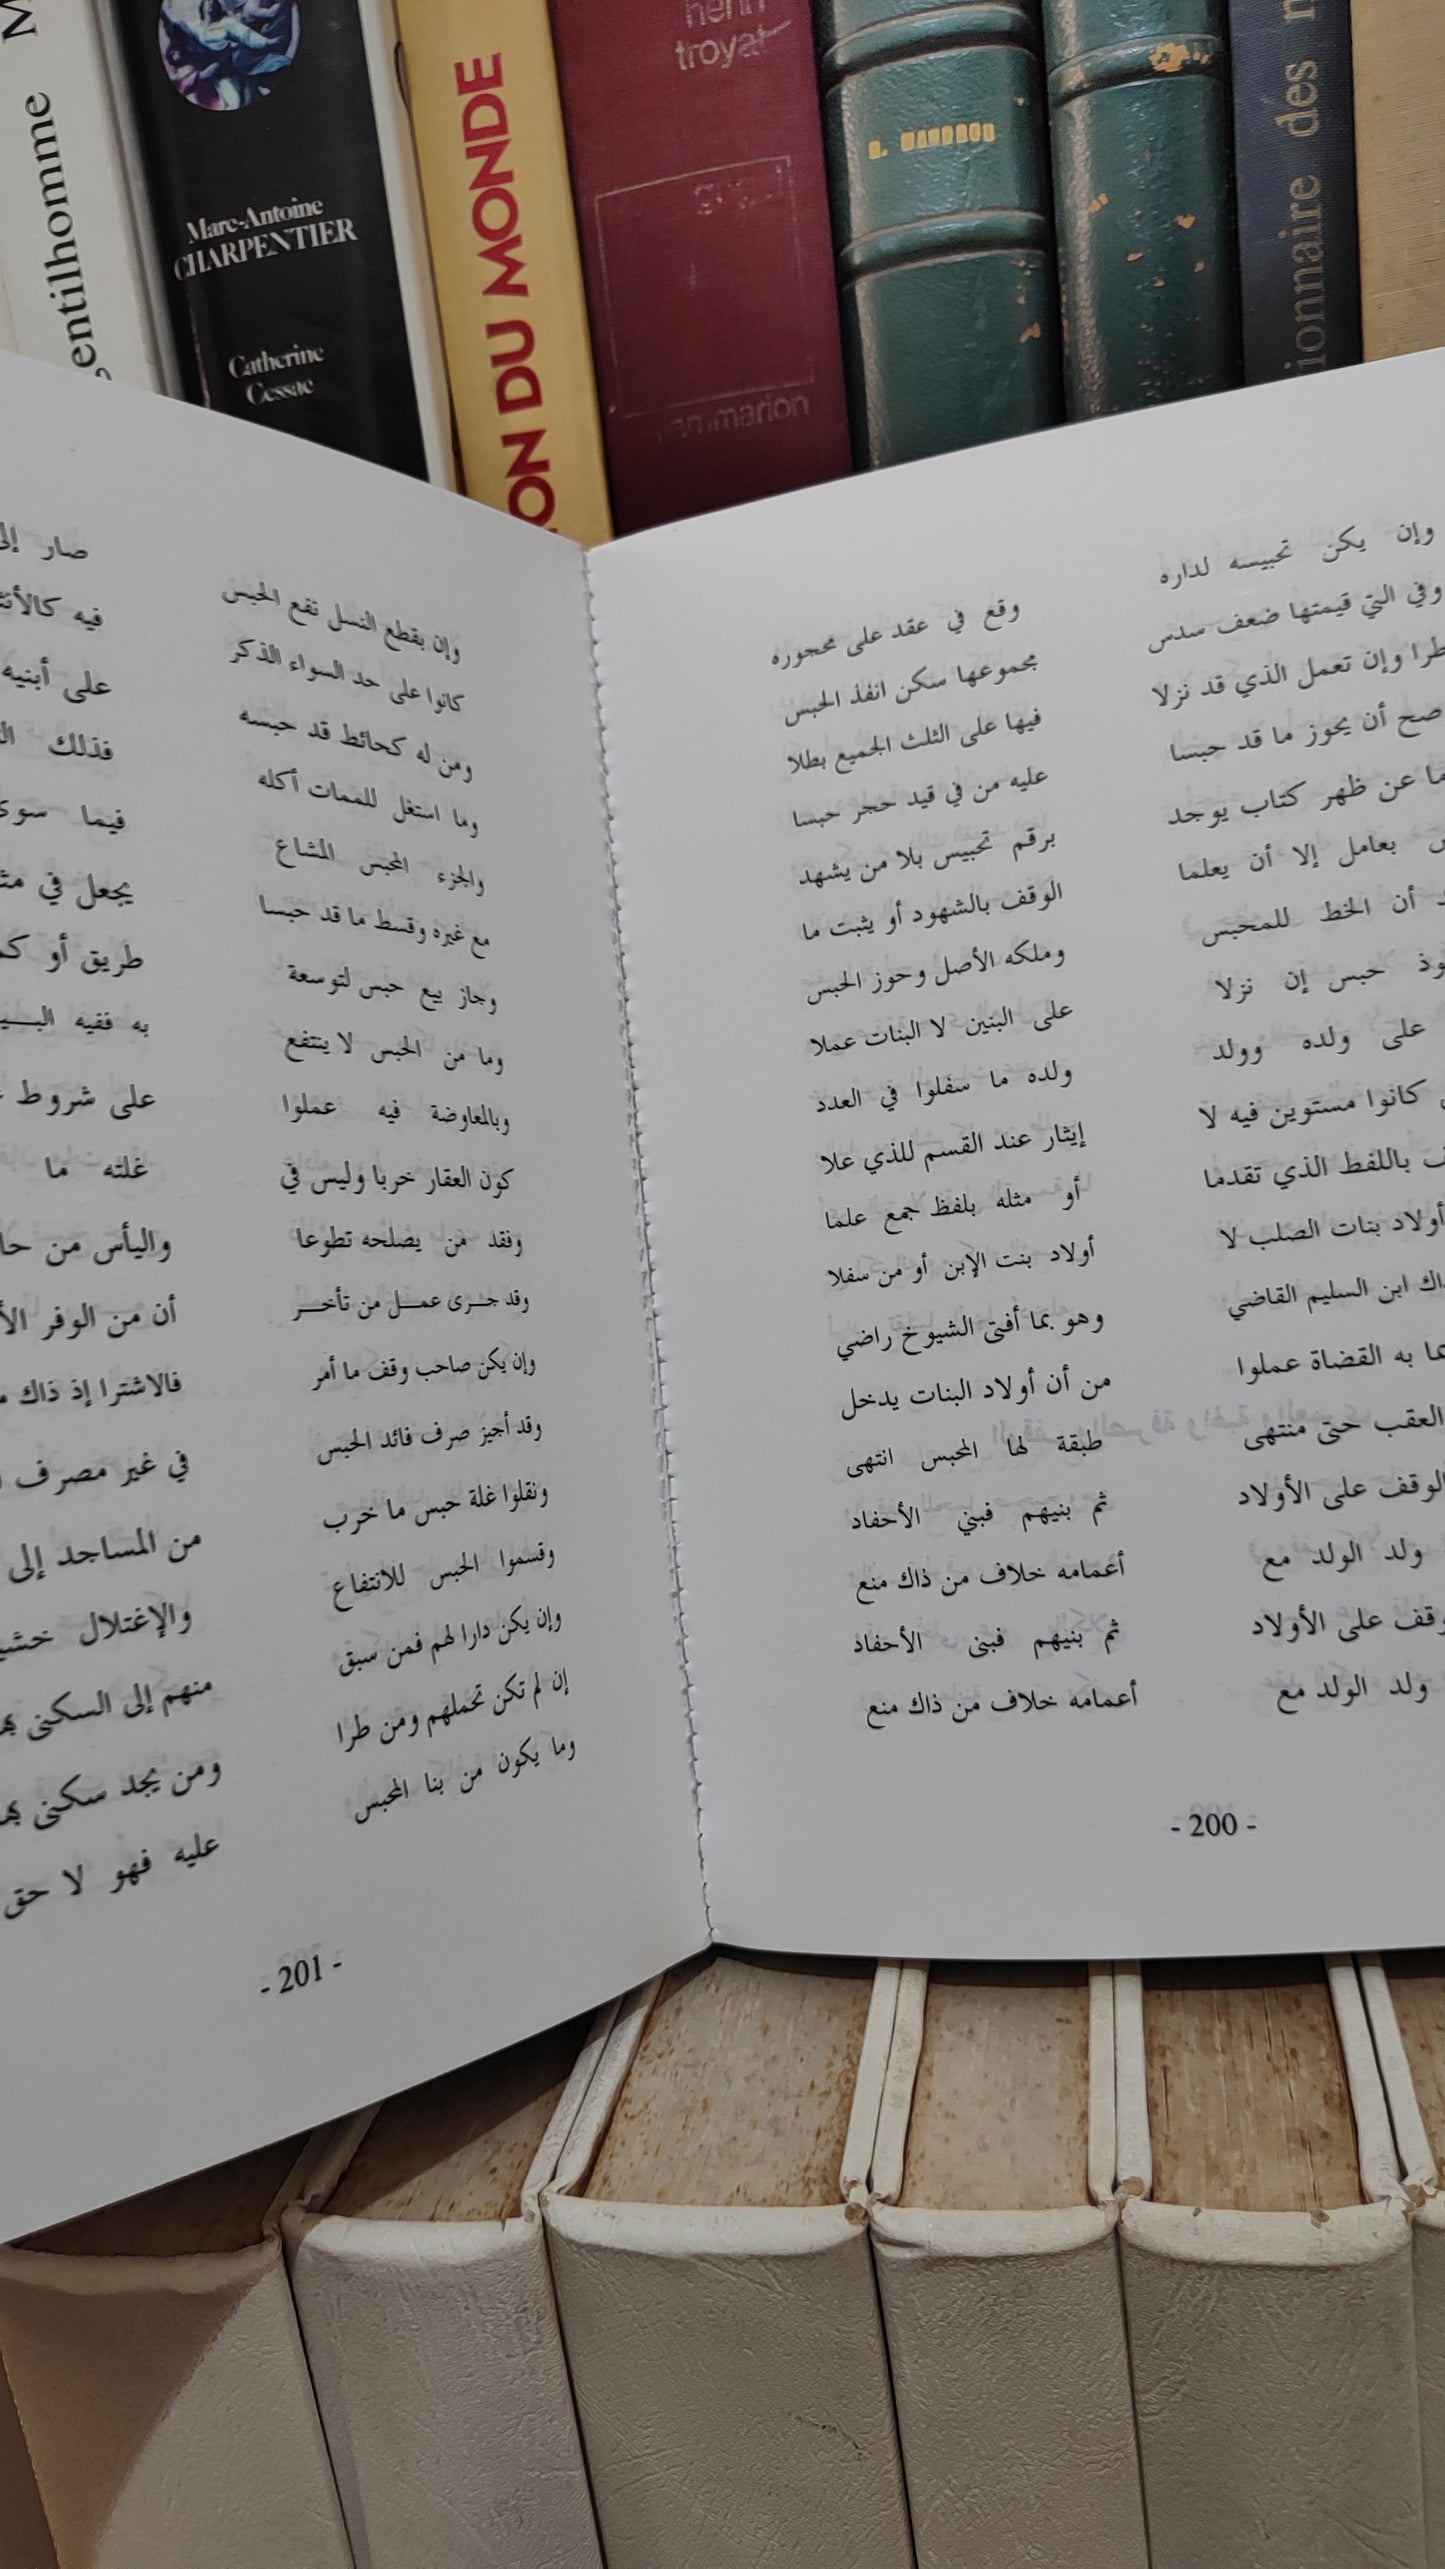 gentilhomme
Marc-Antoine
CHARPENTIER
Catherine
Cessac
ON DU MONDE
henri
troyat
flammarion
ionnaire des
وإن يكن تحبيسه لداره وقع في عقد على محجوره
وفي التي قيمتها ضعف سدس مجموعها سكن انفذ الحبس
طرا وإن تعمل الذي قد نزلا فيها على الثلث الجميع بطلا
صح أن يحوز ما قد حبسا عليه من في قيد حجر حبسا
ما عن ظهر كتاب يوجد برقم تحبيس بلا من يشهد
بعامل إلا أن يعلما الوقف بالشهود أو يثبت ما
أن الخط للمحبس وملكه الأصل وحوز الحبس
حبس إن نزلا على البنين لا البنات عملا
على ولده وولد ولده ما سفلوا في العدد
كانوا مستوين فيه لا إيثار عند القسم للذي علا
باللفظ الذي تقدما أو مثله بلفظ جمع علما
أولاد بنات الصلب لا أولاد بنت الإبن أو من سفلا
ذاك ابن السليم القاضي وهو بما أفتى الشيوخ راضي
بما به القضاة عملوا من أن أولاد البنات يدخل
العقب حتى منتهى طبقة لها المحبس انتهى
الوقف على الأولاد ثم بنيهم فبني الأحفاد
ولد الولد مع أعمامه خلاف من ذاك منع
وقف على الأولاد ثم بنيهم فبنى الأحفاد
ولد الولد مع أعمامه خلاف من ذاك منع
- 200 -
وإن بقطع النسل نقع الحبس صار إلى
كانوا على حد السواء الذكر فيه كالأنثى
ومن له كحائط قد حبسه على أبنيه
وما استغل للممات أكله فذلك
والجزء المحبس المشاع فيما سوى
مع غيره وقسط ما قد حبسا يجعل في
وجاز بيع حبس لتوسعة طريق أو
وما من الحبس لا ينتفع به فقيه
وبالمعاوضة فيه عملوا على شروط
كون العقار خربا وليس في غلته ما
وفقد من يصلحه تطوعا واليأس من
وقد جرى عمل من تأخر أن من الوفر
وإن يكن صاحب وقف ما أمر فالاشترا إذ ذاك
وقد أجيز صرف فائد الحبس في غير مصرف
ونقلوا غلة حبس ما خرب من المساجد إلى
وقسموا الحبس للانتفاع والإغتلال
وإن يكن دارا لهم فمن سبق منهم إلى السكنى
إن لم تكن تحملهم ومن طرا ومن يجد سكنى
وما يكون من بنا المحبس عليه فهو لا حق
- 201 -